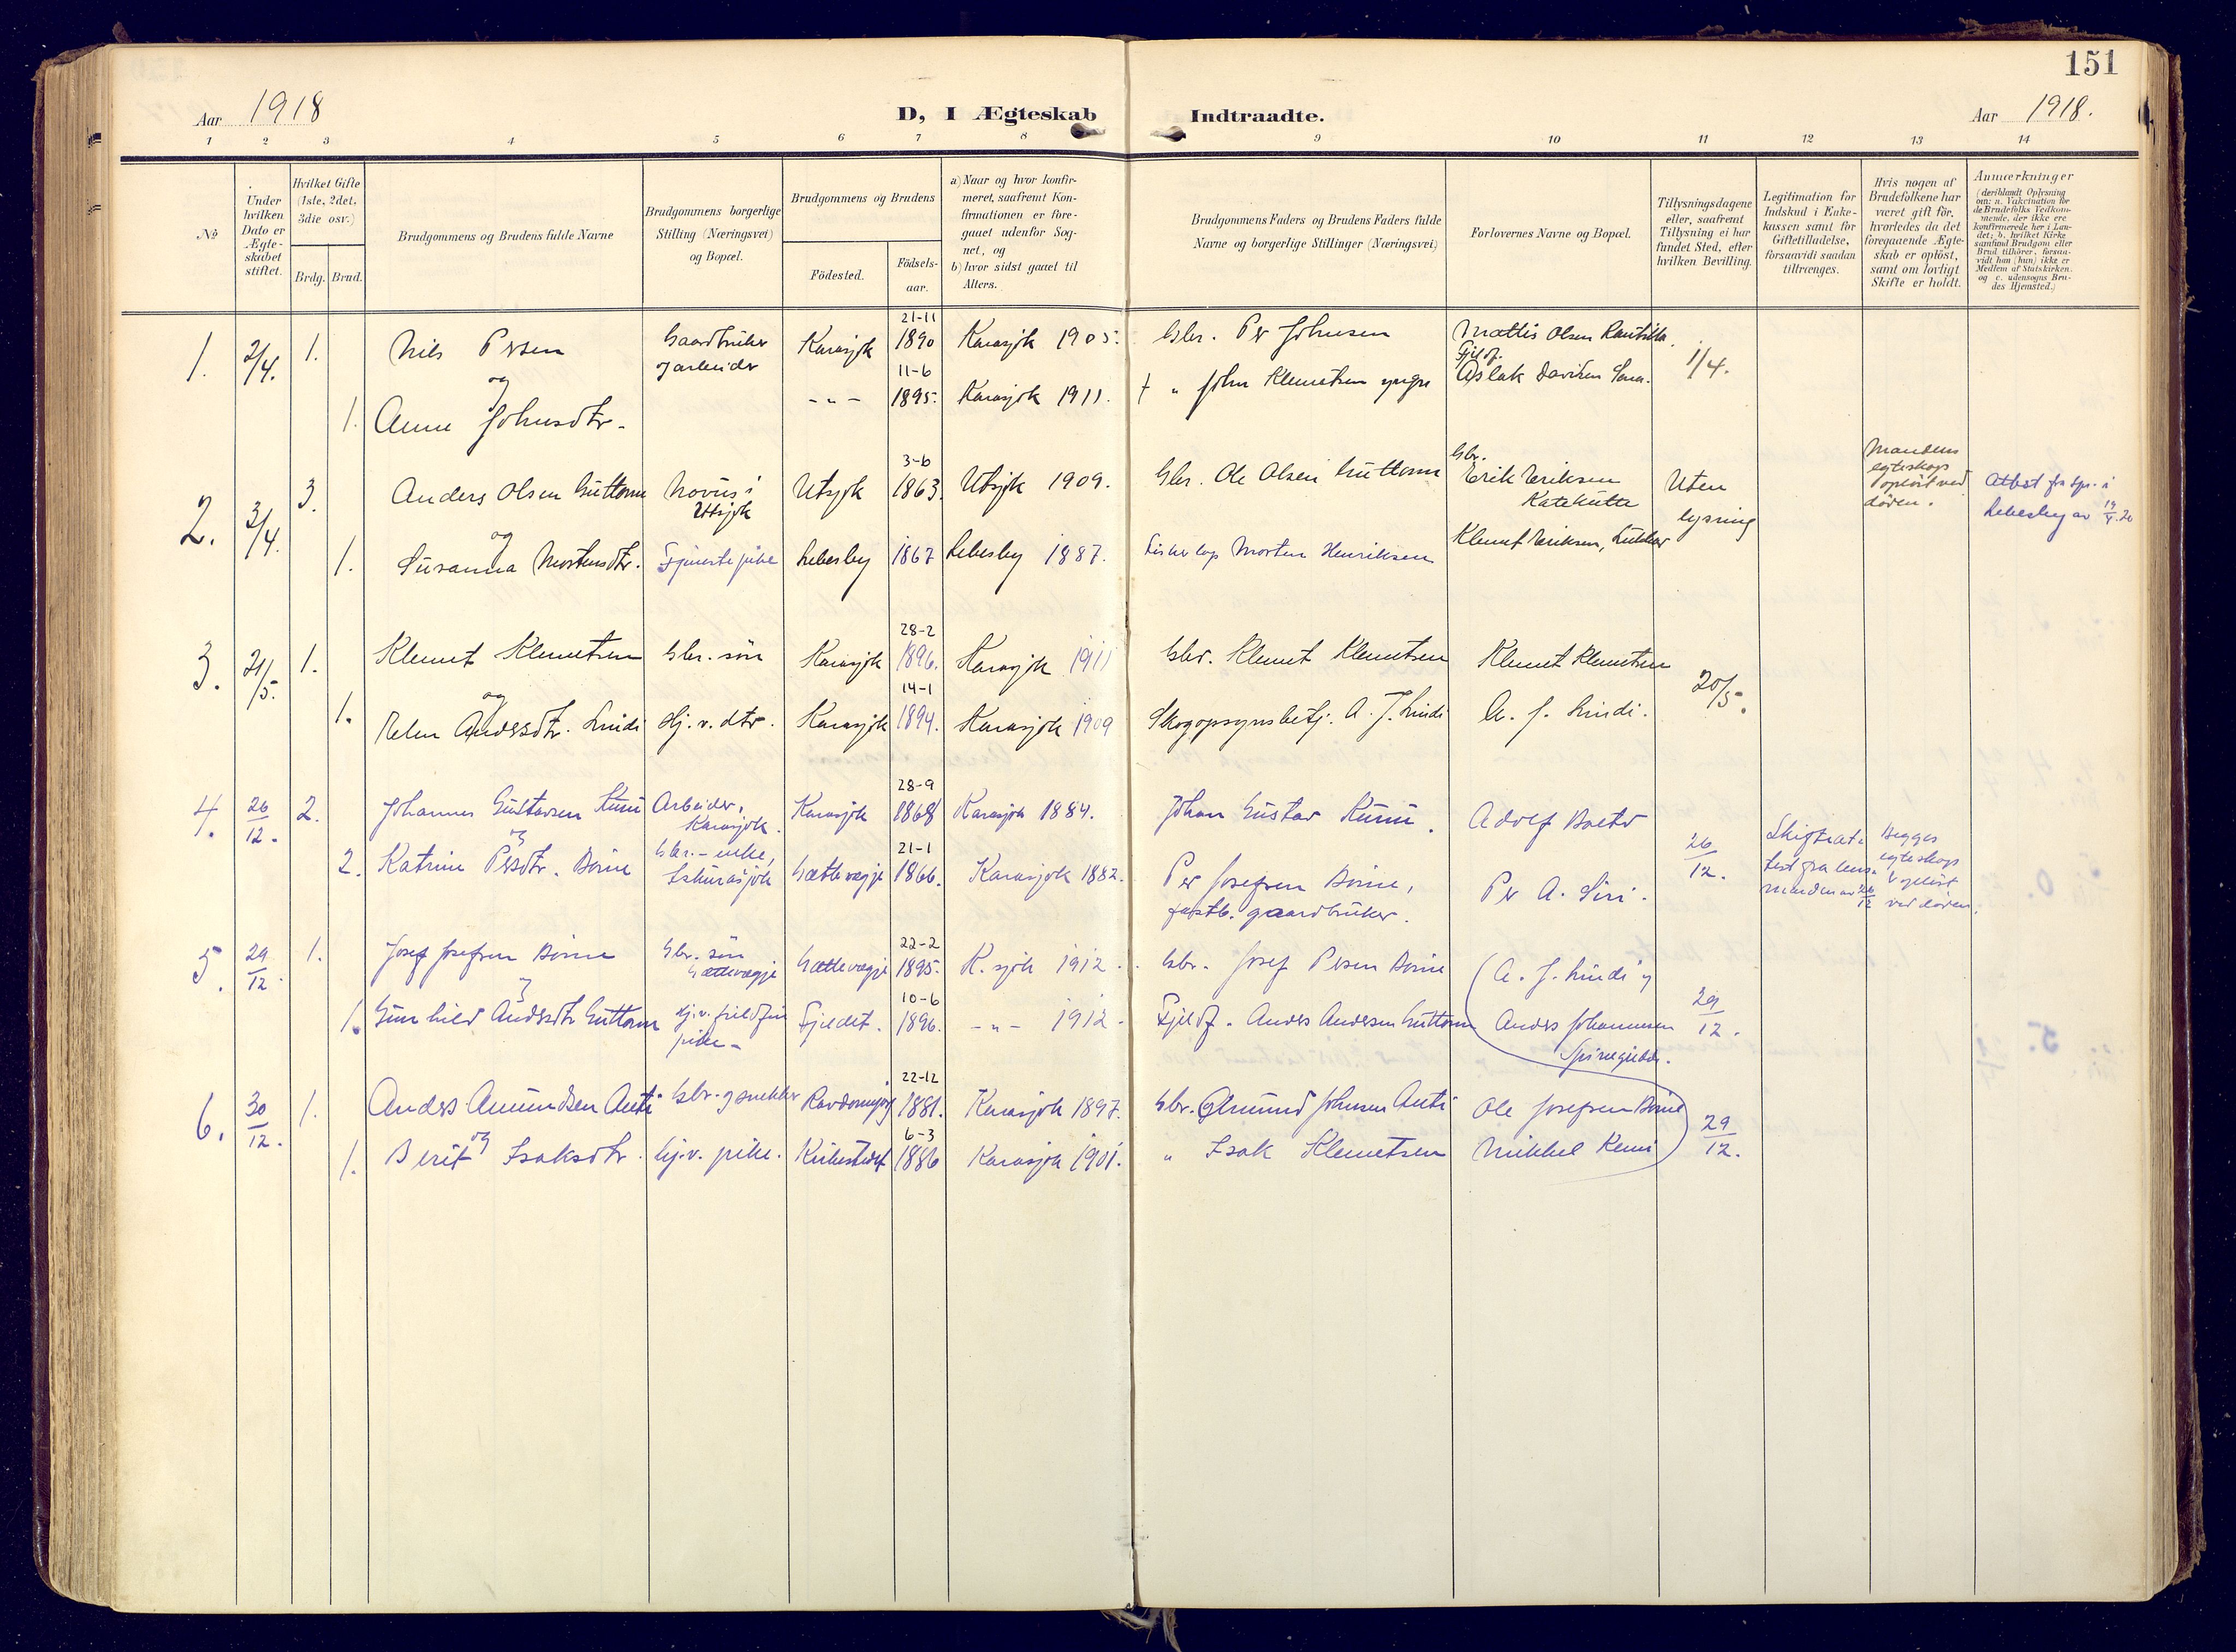 151
Aar 1918
D, I Ægteskab Indtraadte.
Aar 1918.
1 2 3 4 5 6 7 8 9 10 11 12 13 14
No
Under hvilken Dato er Ægteskabet stiftet.
Hvilket Gifte (1ste, 2det, 3die osv.)
Brdg. Brud.
Brudgommens og Brudens fulde Navne
Brudgommens borgerlige Stilling (Næringsvei) og Bopæl.
Brudgommens og Brudens
Födested.
Födsels-aar.
a) Naar og hvor konfirmeret, saafremt Konfirmationen er foregaaet udenfor Sognet, og
b) hvor sidst gaaet til Alters.
Brudgommens Faders og Brudens Faders fulde Navne og borgerlige Stillinger (Næringsvei)
Forlovernes Navne og Bopæl.
Tillysningsdagene eller, saafremt Tillysning ei har fundet Sted, efter hvilken Bevilling.
Legitimation for Indskud i Enkekassen samt for Giftetilladelse, forsaavidt saadan tiltrænges.
Hvis nogen af Brudefolkene har været gift för, hvorledes da det foregaaende Ægteskab er oplöst, samt om lovligt Skifte er holdt.
Anmærkninger
(deriblandt Oplysning om: a. Vakcination for de Brudefolks Vedkommende, der ikke ere konfirmerede her i Landet; b. hvilket Kirkesamfund Brudgom eller Brud tilhörer, forsaavidt han (hun) ikke er Medlem af Statskirken, og c. udensogns Brudes Hjemsted.)
1. 2/4. 1. Nils Persen Gaardbruker og arbeider Karasjok 21-11 1890 Karasjok 1905. Gbr. Per Johnsen Mattis Olsen 1/4.
og
1. Anne Johnsdtr. -"- 11-6 1895. Karasjok 1911. † " John Klemetsen yngre Fjeldf. Aslak Davidsen
2. 3/4. 3. Anders Olsen Guttorm i Utsjok Utsjok 3-6 1863. Utsjok 1909. Gbr. Ole Olsen Guttorm Gbr. Erik Eriksen Katekutta Uten lysning Mandens egteskap oplöst ved döden. Attest fra spr. i Lebesby av 19/4.20
og
1. Susanna Mortensdtr. Tjenestepike Lebesby 1867 Lebesby 1887. Fisker lap Morten Henriksen Klemet Eriksen,
3. 21/5. 1. Klemet Klemetsen Gbr. sön Karasjok 28-2 1896. Karasjok 1911 Gbr. Klemet Klemetsen Klemet Klemetsen 20/5.
og
1. Elen Andersdtr. Lindi Hj.v. dtr. Karasjok 14-1 1894. Karasjok 1909 Skogopsynsbetj. A. J. Lindi A. J. Lindi.
4. 26/12. 2. Johannes Gustavsen Arbeider, Karasjok. Karasjok 28-9 1868 Karasjok 1884. Johan Gustav Adolf Balto 26/12. Skifteattest fra lensmanden av 26/12 Begges egteskap oplöst ved döden.
og
2. Katrine Persdtr. Boine Gbr.-enke, Iskurasjok Gættevægje 21-1 1866. Karasjok 1882. Per Josefsen Boine, gaardbruker. Per A. Siri.
5. 29/12. 1. Josef Josefsen Boine Gbr. sön Gættevægje Gættevægje 22-2 1895. K.sjok 1912. Gbr. Josef Persen Boine A. J. Lindi og 29/12.
og
1. Gunhild Andersdtr Guttorm Hj.v. fjeldfin pike- Fjeldet. 10-6 1896. -"- 1912. Fjeldf. Anders Andersen Guttorm Anders Johannesen
6. 30/12. 1. Anders Amundsen Anti Gbr. og snekker 22-12 1881. Karasjok 1897. Gbr. Amund Johnsen Anti Ole Josefsen Boine 29/12.
og
1. Berit Isaksdtr. hj.v. pike. Kirkestedet 6-3 1886 Karasjok 1901. " Isak Klemetsen Mikkel